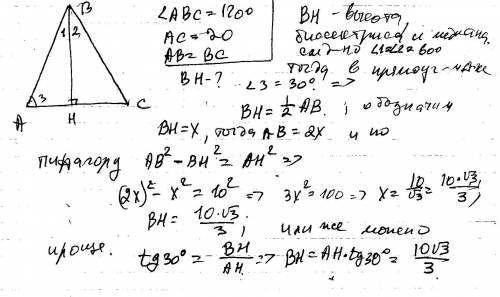 B
1 2
3
A H C
∠ABC = 120°
AC = 20
AB = BC
BH - ?
BH - высота,
биссектриса и медиана,
след-но ∠1=∠2=60°
тогда в прямоуг-м
∠3 = 30° =>
BH = 1/2 AB. ; обозначим
BH = x, тогда AB = 2x и по
пифагору AB² - BH² = AH² =>
(2x)² - x² = 10² => 3x² = 100 => x = 10/√3 = 10·√3/3,
BH = 10·√3/3; или же можно
проще. tg 30° = BH/AH => BH = AH·tg 30° = 10√3/3